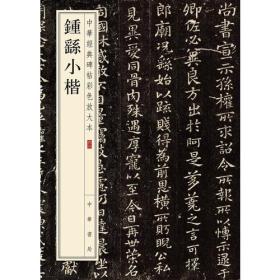 尚書宣示孫權所求詔令所報所以博示
于卿佐必冀良方出於阿是芻蕘之言可擇
郎廟況繇始以疏賤得為前恩橫所眄睨公私
見異愛同骨肉殊遇厚寵以至今日再世榮名
中華經典碑帖彩色放大本
鍾繇小楷
中華書局